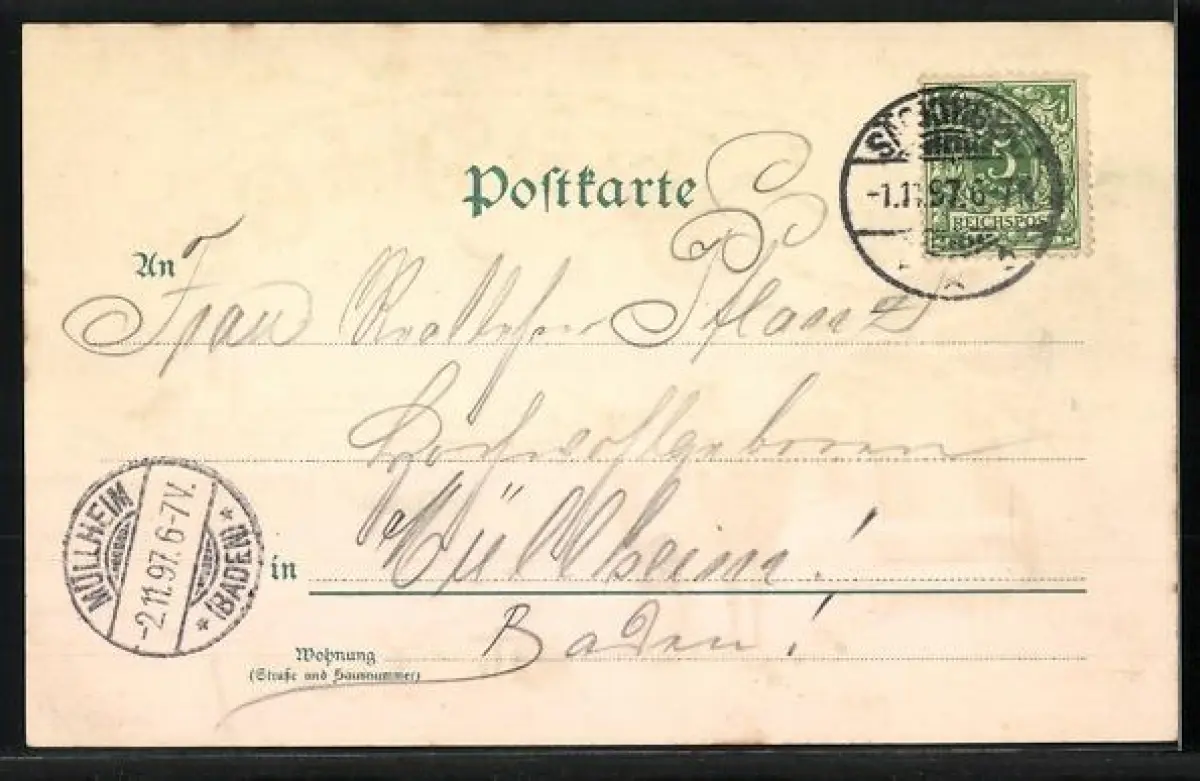 Postkarte
SÄCKINGEN
-1.11.97. 6-7N.
5
REICHSPOST
An
Frau Reallehrer Pflanz
Hochwohlgeboren
in Müllheim!
Baden!
Wohnung
(Straße und Hausnummer)
MÜLLHEIM
-2.11.97. 6-7V.
* (BADEN) *